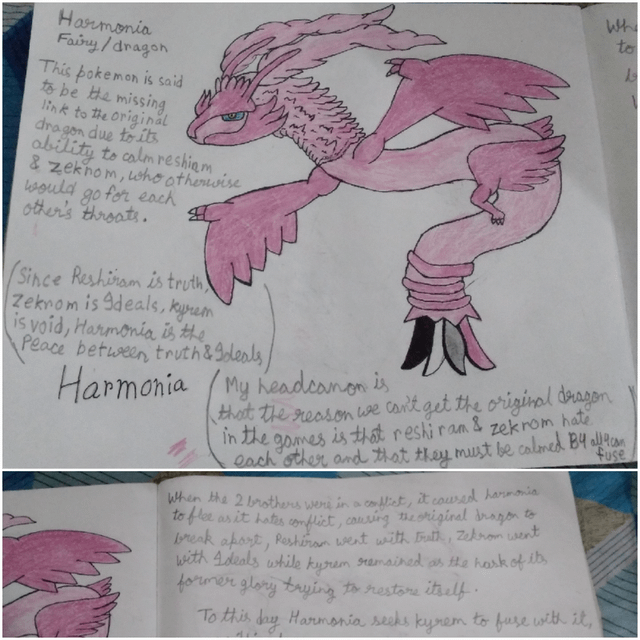 Harmonia
Fairy/dragon
This pokemon is said
to be the missing
link to the original
dragon due to its
ability to calm reshiram
& zekrom, who otherwise
would go for each
other's throats.
(Since Reshiram is truth,
Zekrom is Ideals, kyrem
is void, Harmonia is the
Peace between truth & Ideals)
Harmonia
(My headcanon is
that the reason we can't get the original dragon
in the games is that reshiram & zekrom hate
each other and that they must be calmed By all 4 can
fuse
Whe
to
When the 2 brothers were in a conflict, it caused harmonia
to flee as it hates conflict, causing the original dragon to
break apart, Reshiram went with truth, Zekrom went
with Ideals while kyrem remained as the husk of its
former glory trying to restore itself.
To this day Harmonia seeks kyrem to fuse with it,